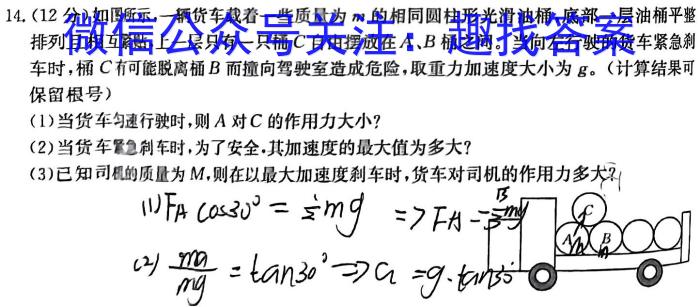 14.(12分)如图所示,一辆货车载着一些质量为m的相同圆柱形光滑油桶,底部一层油桶平整
排列且相互紧贴,上一层只有一只桶C自由摆放在A、B桶之间。当向左行驶的货车紧急刹
微信公众号关注：趣找答案
车时,桶C有可能脱离桶B而撞向驾驶室造成危险,取重力加速度大小为g。(计算结果可
保留根号)
(1)当货车匀速行驶时,则A对C的作用力大小?
(2)当货车紧急刹车时,为了安全,其加速度的最大值为多大?
(3)已知司机的质量为M,则在以最大加速度刹车时,货车对司机的作用力多大?
(1) FA cos30° = ½mg => FA = √3/3 mg
C
A B
(2) ma/mg = tan30° => a = g·tan30°